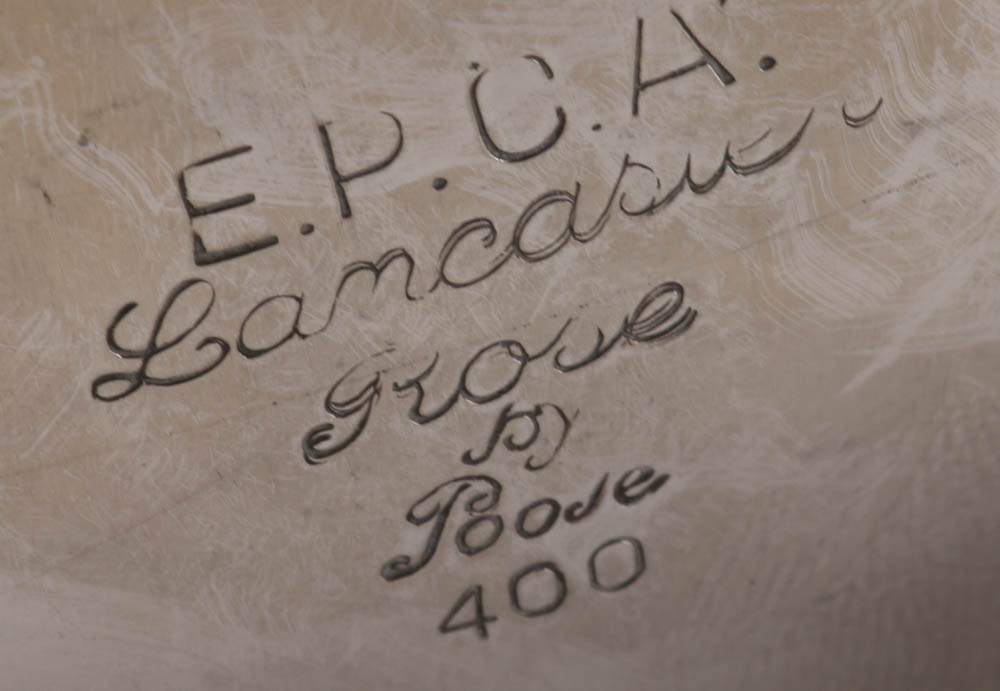 E.P.C.A.
Lancaster
Rose
By
Poole
400